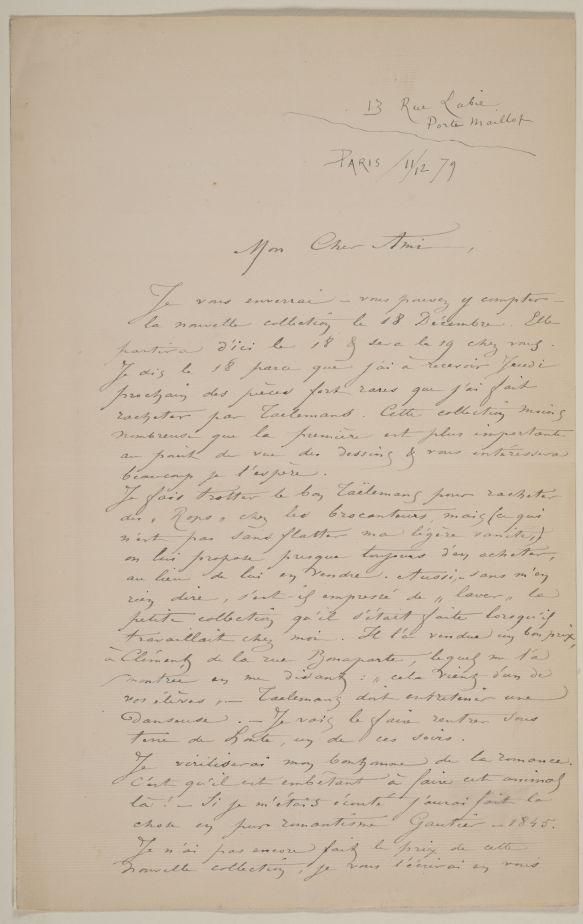 13 Rue Labie
Porte Maillot
PARIS /11/12 79
Mon Cher Ami,
Je vous enverrai – vous pouvez y compter –
la nouvelle collection le 18 Décembre. Elle
partira d'ici le 18 & sera le 19 chez vous.
Je dis le 18 parce que j'ai à recevoir Jeudi
prochain des pièces fort rares que j'ai fait
racheter par Taelemans. Cette collection moins
nombreuse que la première est plus importante
au point de vue des dessins & vous intéressera
beaucoup je l'espère.
Je fais trotter le bon Taëlemans pour racheter
des „ Rops " chez les brocanteurs, mais (ce qui
n'est pas sans flatter ma légère vanité,)
on lui propose presque toujours d'en acheter,
au lieu de lui en vendre. Aussi, sans m'en
rien dire, s'est-il empressé de „ laver " la
petite collection qu'il s'était faite lorsqu'il
travaillait chez moi. Il l'a vendue un bon prix,
à Cléments de la rue Bonaparte, lequel me l'a
montrée en me disant : „ cela vient d'un de
vos élèves „ – Taelemans doit entretenir une
Danseuse. – Je vais le faire rentrer sous
terre de honte, un de ces soirs.
Je viriliserai mon bonhomme de la romance.
C'est qu'il est embêtant à faire cet animal
là ! – Si je m'étais écouté j'aurai fait la
chose en pur romantisme Gautier – 1845.
Je n'ai pas encore fait le prix de cette
nouvelle collection, je vous l'écrirai en vous